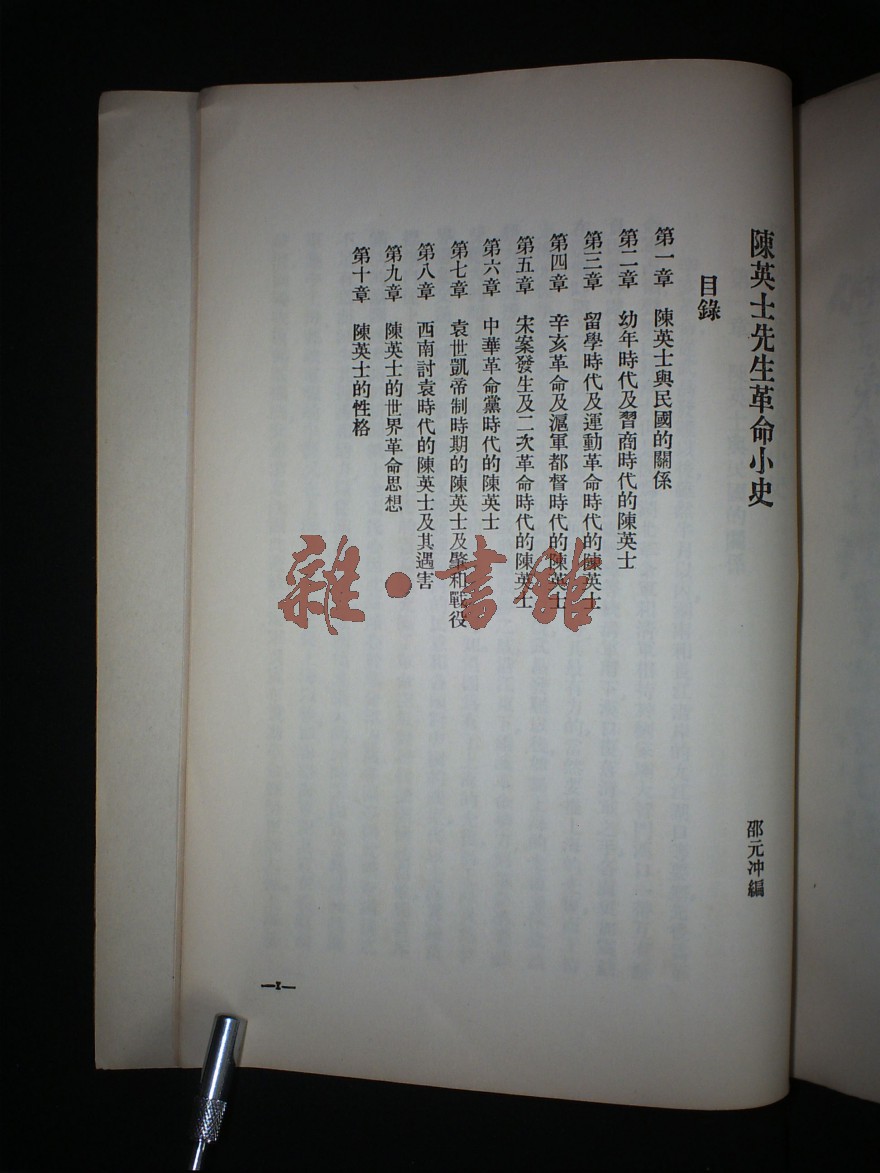 陳英士先生革命小史
邵元冲編
目錄
第一章 陳英士與民國的關係
第二章 幼年時代及習商時代的陳英士
第三章 留學時代及運動革命時代的陳英士
第四章 辛亥革命及滬軍都督時代的陳英士
第五章 宋案發生及二次革命時代的陳英士
第六章 中華革命黨時代的陳英士
第七章 袁世凱帝制時期的陳英士及肇和戰役
第八章 西南討袁時代的陳英士及其遇害
第九章 陳英士的世界革命思想
第十章 陳英士的性格
—I—
雜·書館